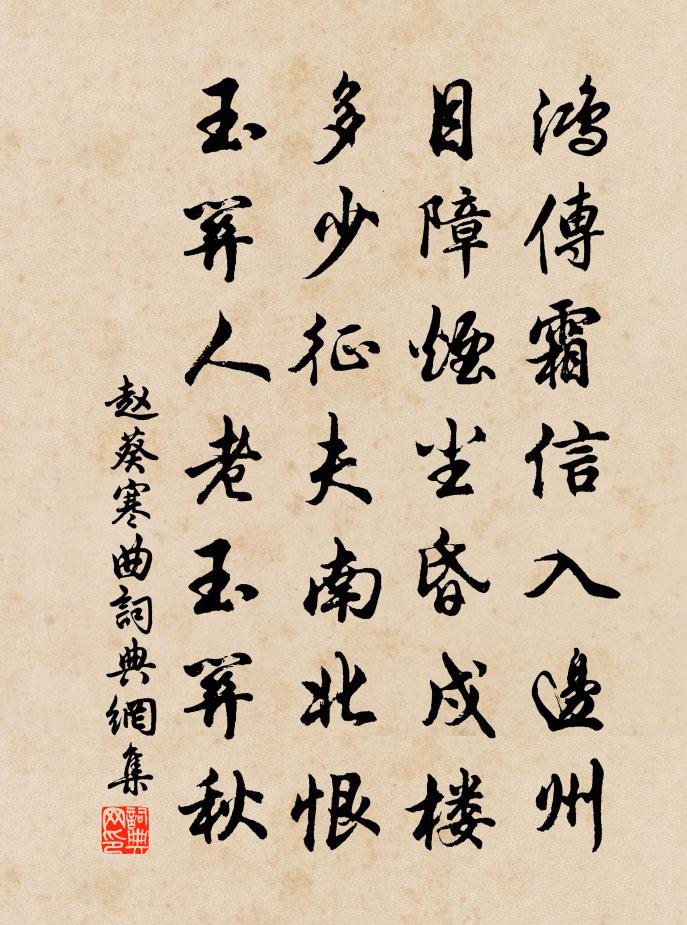 鴻傳霜信入邊州
目障煙尘昏戍楼
多少征夫南北恨
玉箏人老玉箏秋
赵葵寒曲詞典網集
詞典网印